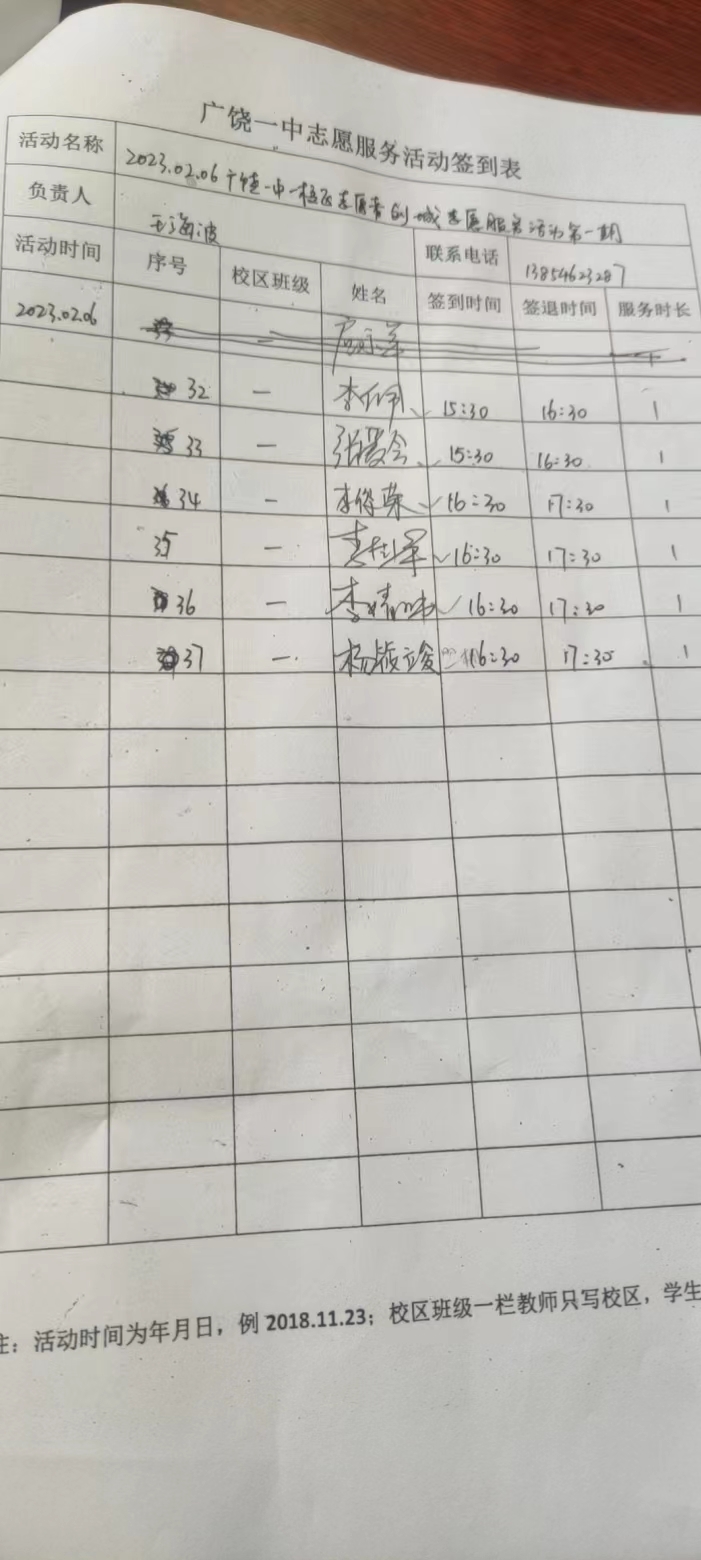 广饶一中志愿服务活动签到表
活动名称 2023.02.06广饶一中一校区志愿者创城志愿服务活动第一期
负责人 王海波 联系电话 13854623287
活动时间 序号 校区班级 姓名 签到时间 签退时间 服务时长
2023.02.06
32 一 15:30 16:30 1
33 一 张爱会 15:30 16:30 1
34 一 李俊荣 16:30 17:30 1
35 一 16:30 17:30 1
36 一 李婧味 16:30 17:30 1
37 一 杨颖俊 16:30 17:30 1
注：活动时间为年月日，例2018.11.23；校区班级一栏教师只写校区，学生